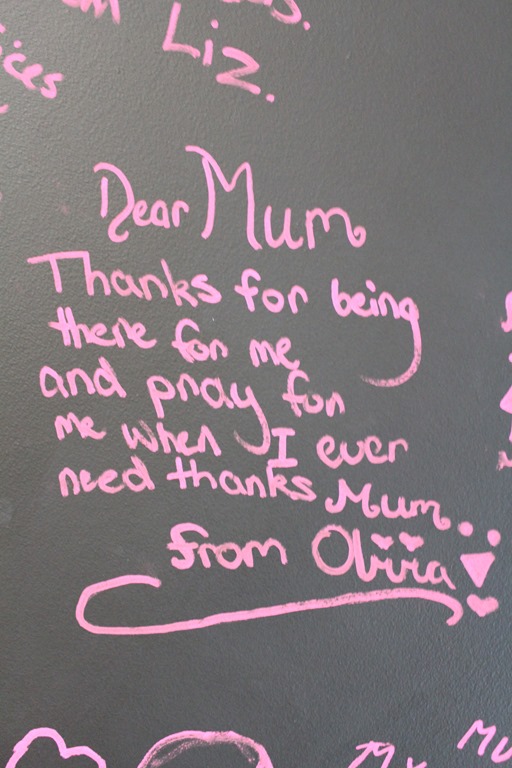 Liz.
ices
Dear Mum
Thanks for being
there for me
and pray for
me when I ever
need thanks Mum..
from Olivia
My
Mu